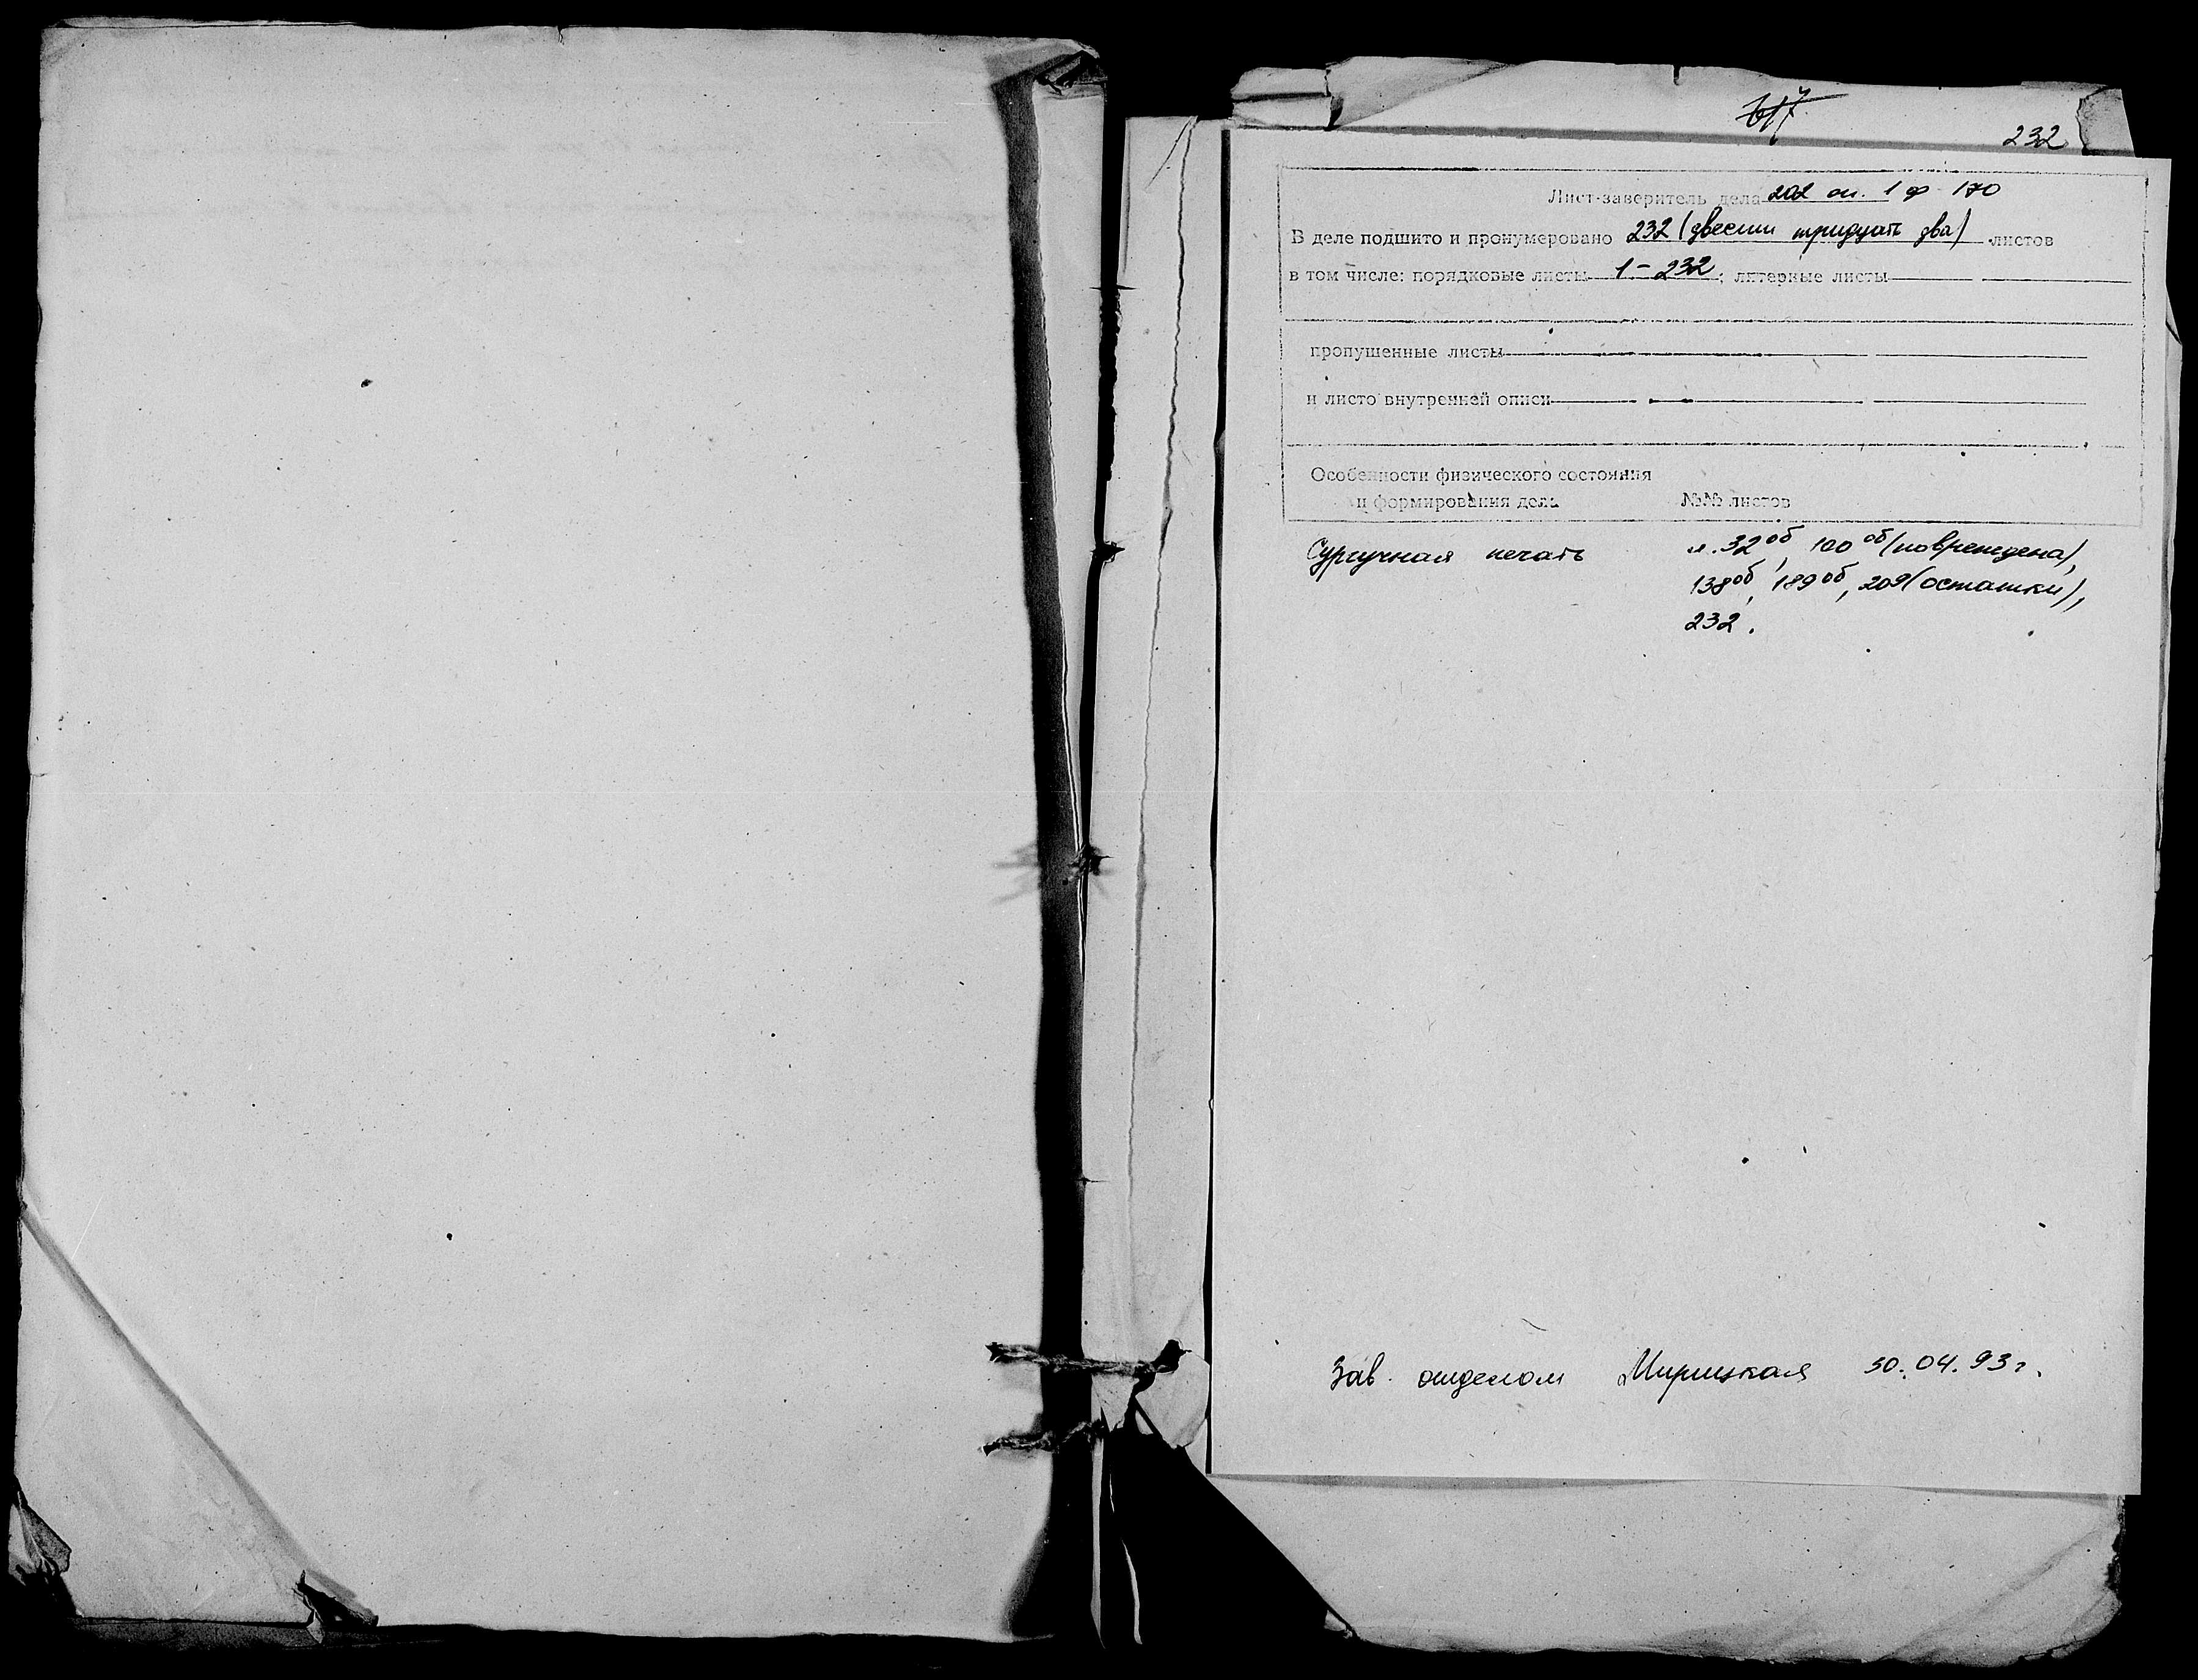 232
Лист-заверитель дела 202 оп. 1 ф 170
В деле подшито и пронумеровано 232 (двести тридцать два) листов
в том числе: порядковые листы 1-232; литерные листы
пропушенные листы
и листо внутренней описи
Особенности физического состояния
и формирования дела №№ листов
Сургучная печать л. 32об, 100об (повреждена),
138об, 189об, 209 (остатки),
232.
Зав. отделом 30.04.93г.